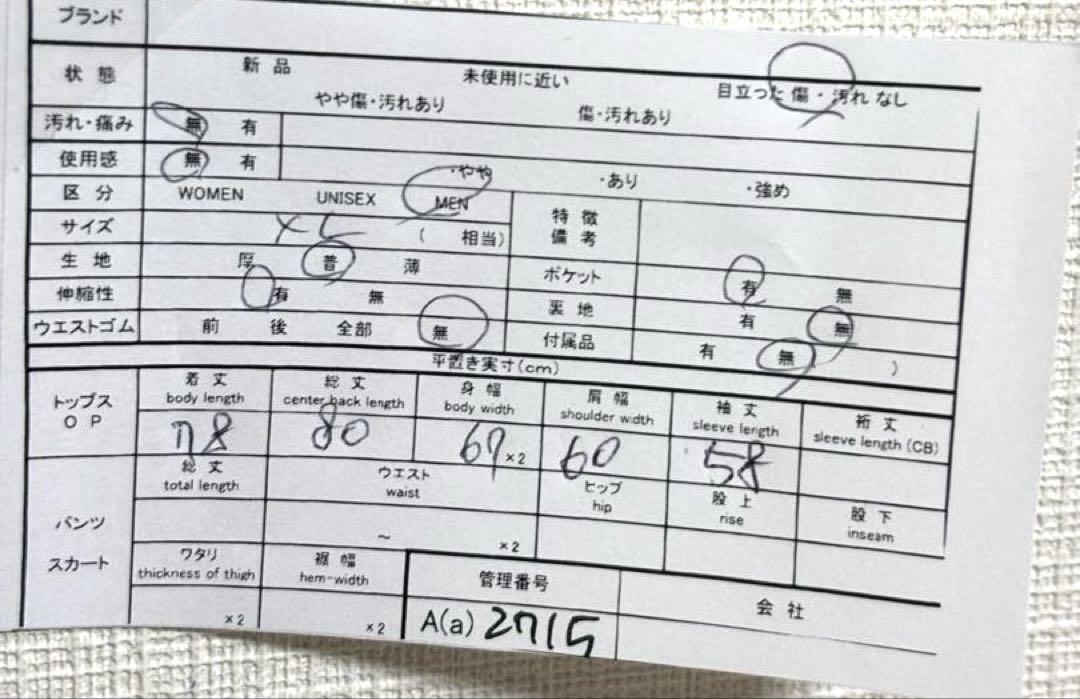 ブランド
状態 新品 未使用に近い 目立った傷・汚れなし
やや傷・汚れあり 傷・汚れあり
汚れ・痛み 無 有
使用感 無 有 ・やや ・あり ・強め
区分 WOMEN UNISEX MEN 特徴備考
サイズ XL ( 相当)
生地 厚 普 薄 ポケット 有 無
伸縮性 有 無 裏地 有 無
ウエストゴム 前 後 全部 無 付属品 有 無 )
平置き実寸(cm)
トップス OP
着丈 総丈 身幅 肩幅 袖丈 裄丈
body length center back length body width shoulder width sleeve length sleeve length (CB)
78 80 67 ×2 60 58
総丈 ウエスト ヒップ 股上 股下
total length waist hip rise inseam
パンツ
~ ×2
スカート
ワタリ 裾幅 管理番号 会社
thickness of thigh hem-width
×2 ×2 A(a) 2715